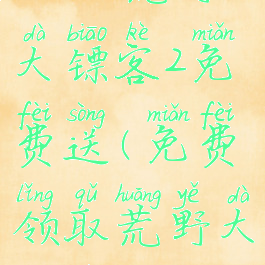 dà biāo kè miǎn
大镖客2免
fèi sòng miǎn fèi
费送(免费
lǐng qǔ huāng yě dà
领取荒野大